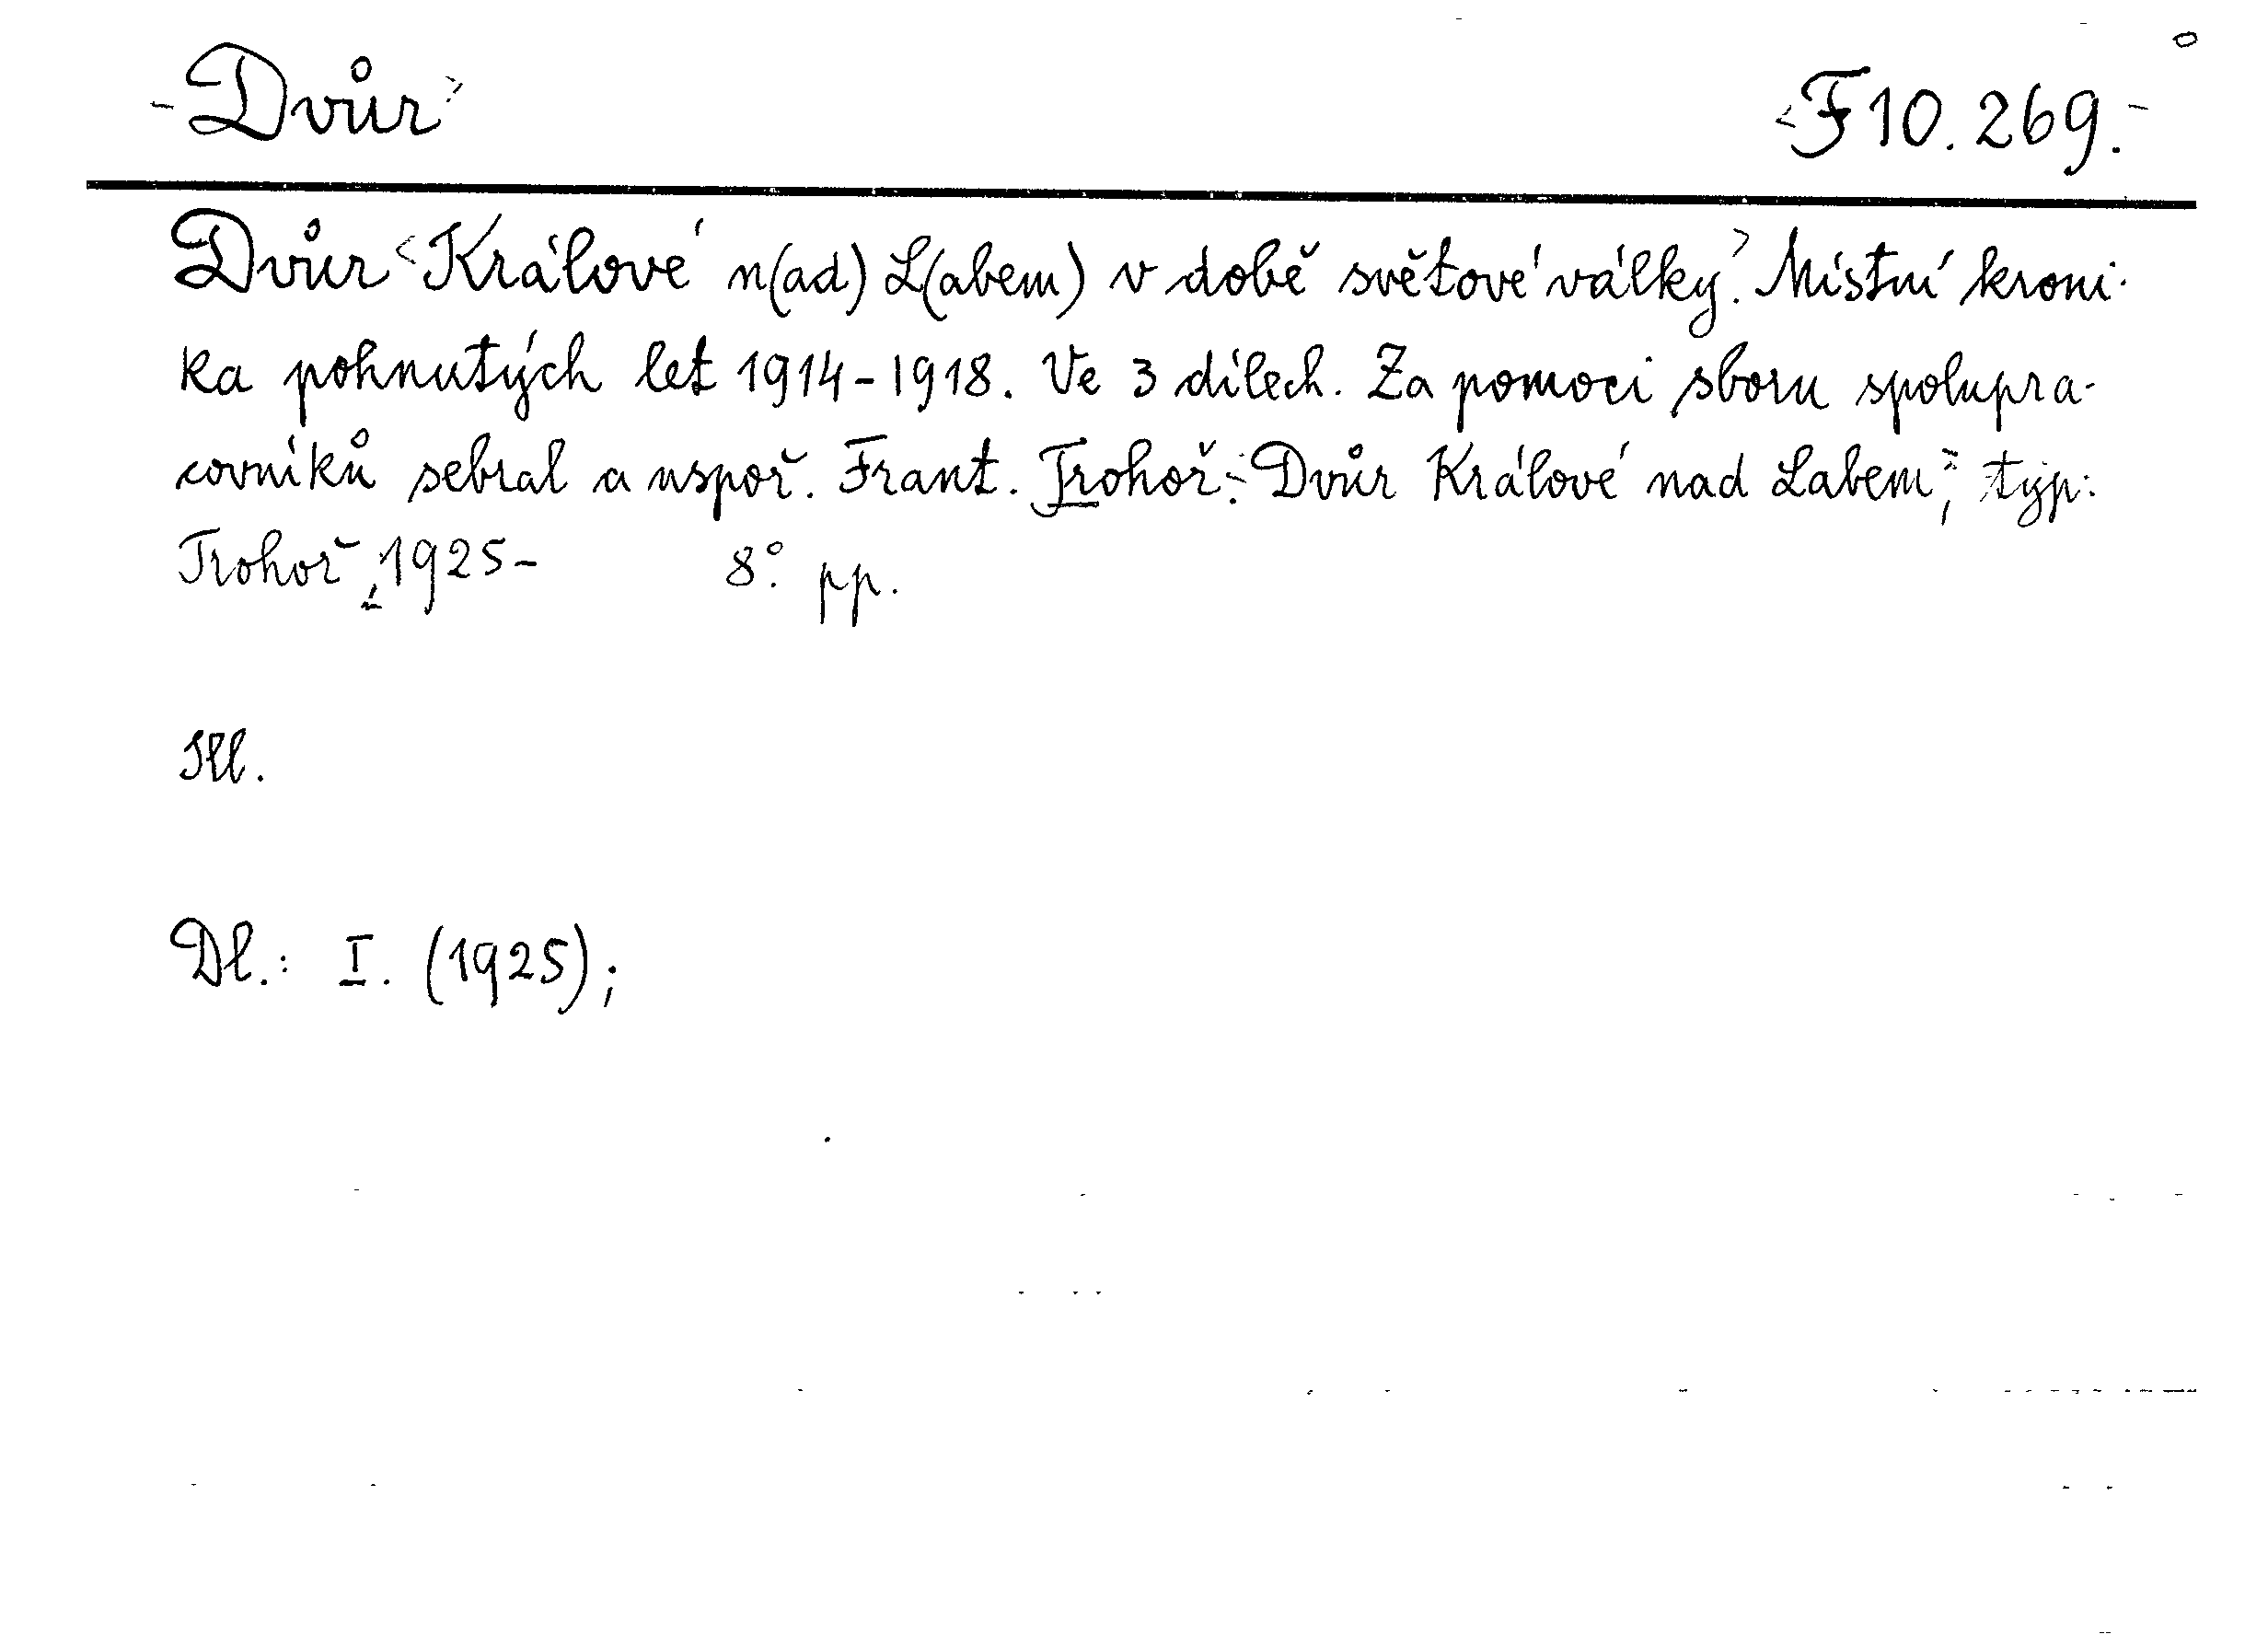 Dvůr F 10.269.
Dvůr Králové n(ad) L(abem) v době světové války. Místní kroni-
ka pohnutých let 1914-1918. Ve 3 dílech. Za pomoci sboru spolupra-
covníků sebral a uspoř. Frant. Trohoř. Dvůr Králové nad Labem, typ.
Trohoř, 1925- 8°. pp.
Ill.
Dl.: I. (1925);